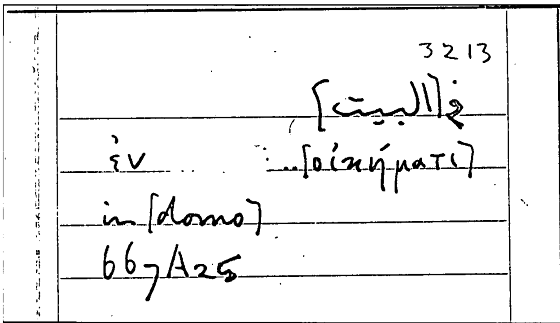 3213
في [البيت]
ἐν ... [οἰκήματι]
in [domo]
667A25